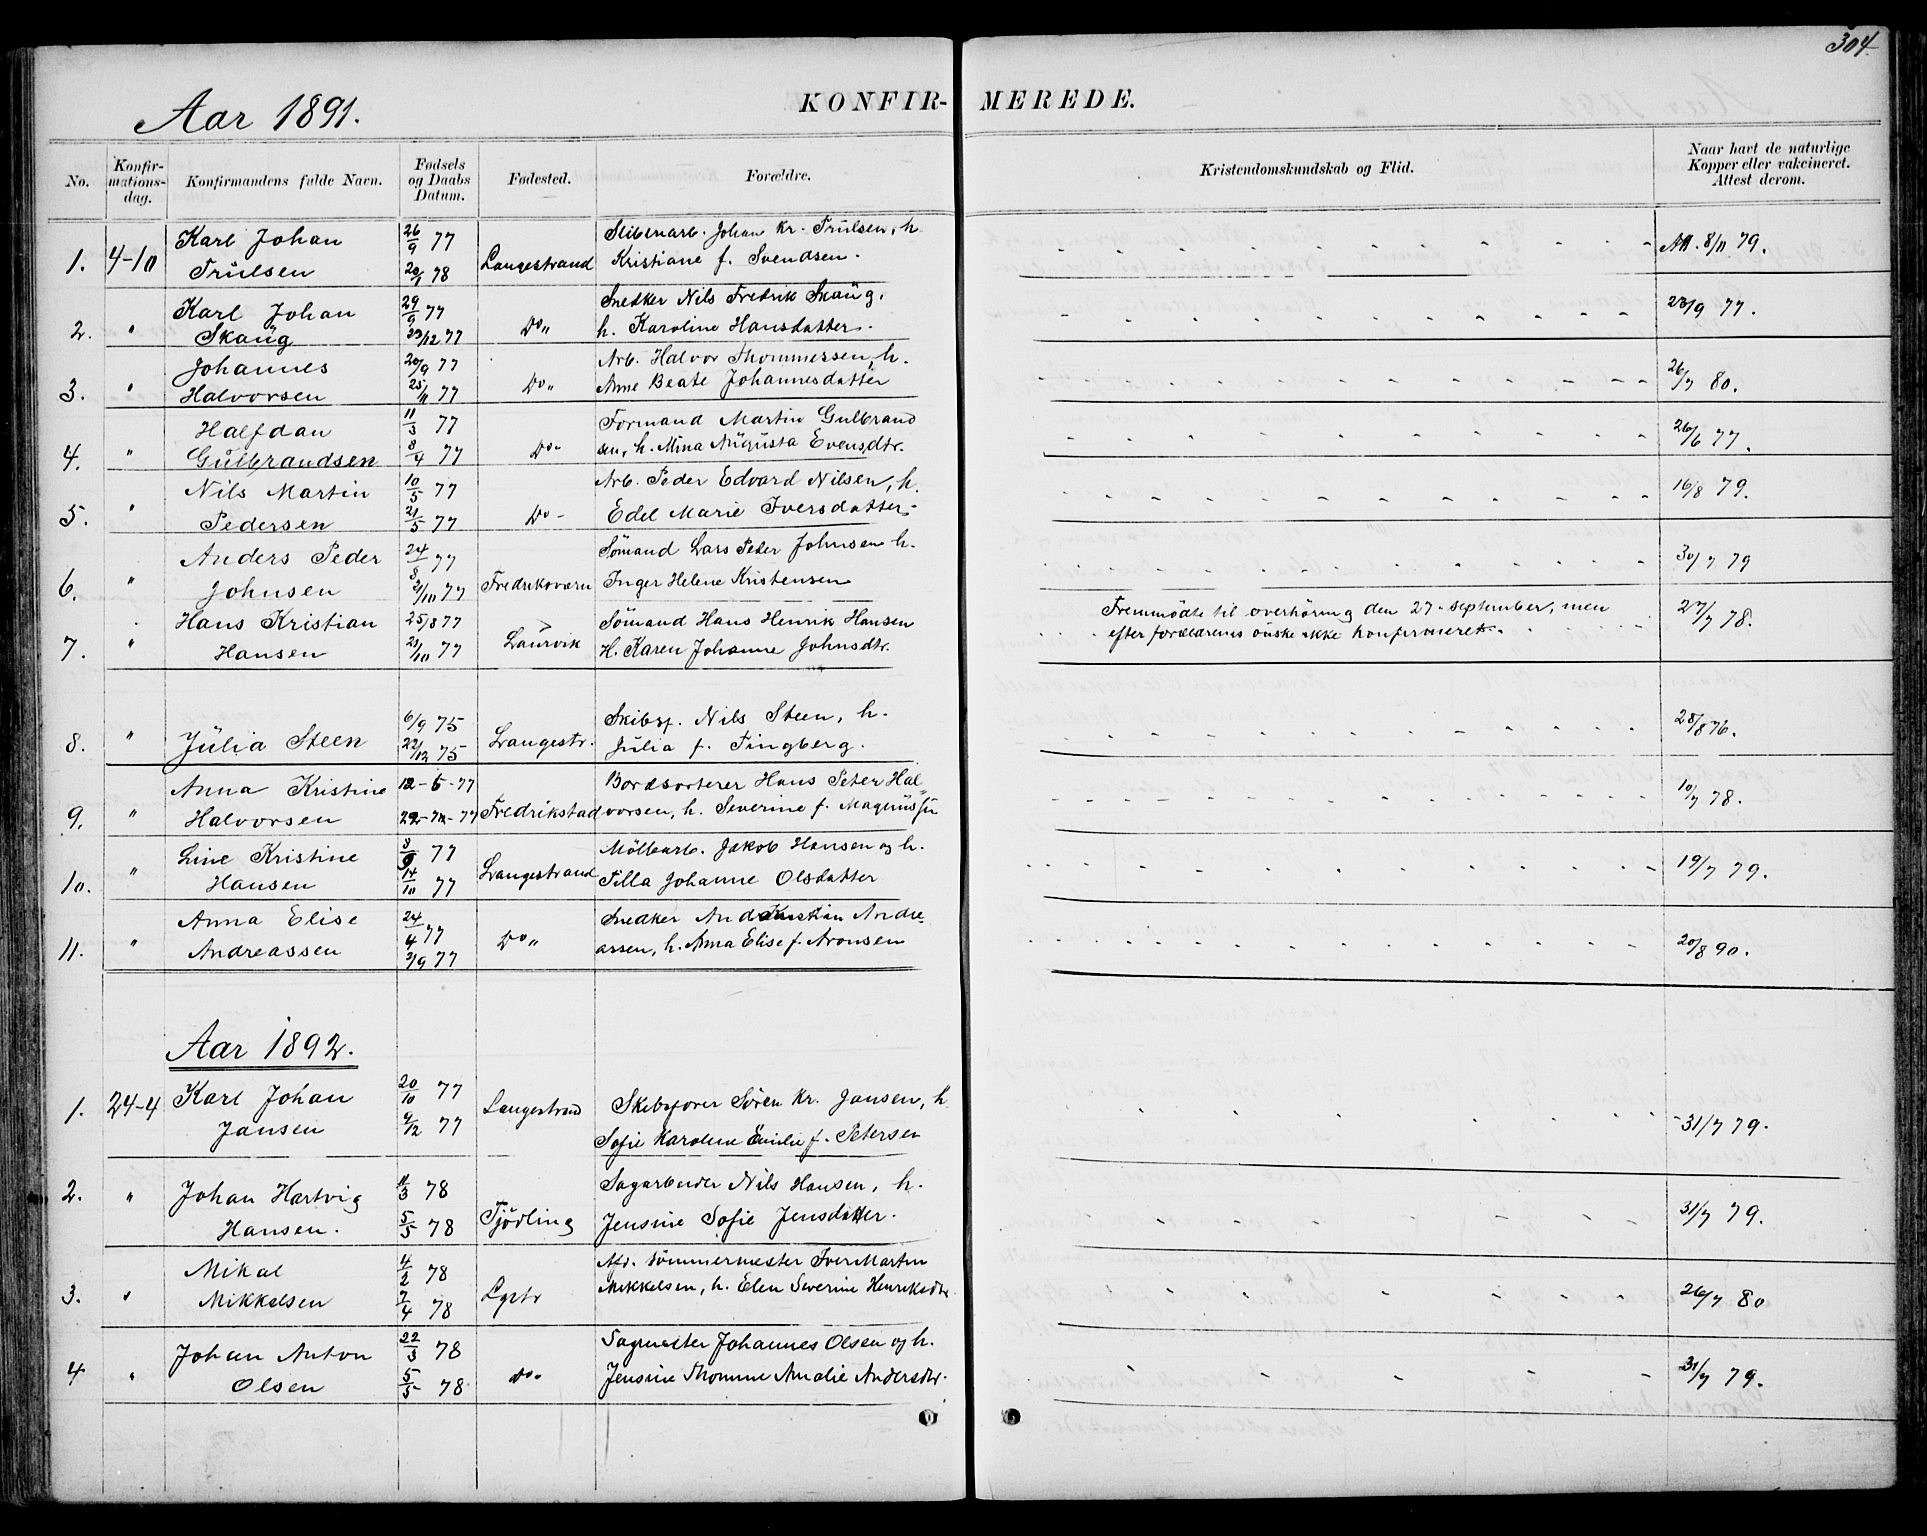 304.
Aar 1891.
KONFIR- MEREDE.
No. Konfir-mations-dag. Konfirmandens fulde Navn. Fødsels og Daabs Datum. Fødested. Forældre. Kristendomskundskab og Flid. Naar havt de naturlige Kopper eller vakcineret. Attest derom.
Karl Johan 26/9 77 Johan Kr. Trulsen, h.
1. 4-10 Trulsen 20/1 78 Langestrand Kristiane f. Svendsen. Att. 8/11 79.
Karl Johan 29/9 77 Snedker Nils Fredrik Skaug,
2. " Skaug 23/12 77 Do " h. Karoline Hansdatter. 23/9 77.
Johannes 20/9 77 Arb. Halvor Thommessen, h.
3. " Halvorsen 25/11 77 Do " Anne Beate Johannesdatter 26/7 80.
Halfdan 11/3 77 Formand Martin Gulbrand
4. " Gulbrandsen 8/4 77 Do " sen, h. Mina Augusta Evensdtr. 26/6 77.
Nils Martin 10/5 77 Arb. Peder Edvard Nilsen, h.
5. " Pedersen 21/5 77 Do - Edel Marie Iversdatter. 16/8 79.
Anders Peder 24/8 77 Sømand Lars Peter Johnsen h.
6. " Johnsen 2/10 77 Fredriksværn Inger Helene Kristensen 30/7 79
Hans Kristian 25/8 77 Sømand Hans Henrik Hansen Fremmødte til overhøring den 27. september, men
7. " Hansen 21/10 77 Laurvik H. Karen Johanne Johnsdtr. efter forældrenes ønske ikke konfirmeret. 27/7 78.
6/9 75 Skibsf. Nils Steen, h.
8. " Julia Steen 22/12 75 Langestr. Julia f. Tingberg. 28/8 76.
Anna Kristine 12-5-77 Bordsorterer Hans Peter Hal=
9. " Halvorsen 77 Fredrikstad vorsen, h. Severine f. 10/7 78.
Line Kristine 3/9 77 Møllearb. Jakob Hansen og h.
10. " Hansen 14/10 77 Langestrand Tilla Johanne Olsdatter 19/7 79.
Anna Elise 24/4 77 Snedker Andre
11. " Andreassen 2/9 77 Do " assen, h. Anna Elise f. Aronsen 20/8 90.
Aar 1892.
1. 24-4 Karl Johan 20/10 77 Langestrand Skibsfører Søren Kr. Jansen, h.
Jansen 9/12 77 Sofie Karoline Emilie f. Petersen 31/7 79.
2. " Johan Hartvig 11/3 78 Sagarbeider Nils Hansen, h.
Hansen. 5/5 78 Tjødling Jensine Sofie Jensdatter. 31/7 79.
Mikal 4/2 78 Afd. Tømmermester Iver Martin
3. " Mikkelsen 7/4 78 Lgstr Mikkelsen, h. Elen Severine Henriksdtr. 26/7 80
Johan Anton 22/3 78 Sagmester Johannes Olsen og h.
4 " Olsen 5/5 78 Do " Jensine Thomine Amalie Andersdtr. 31/7 79.